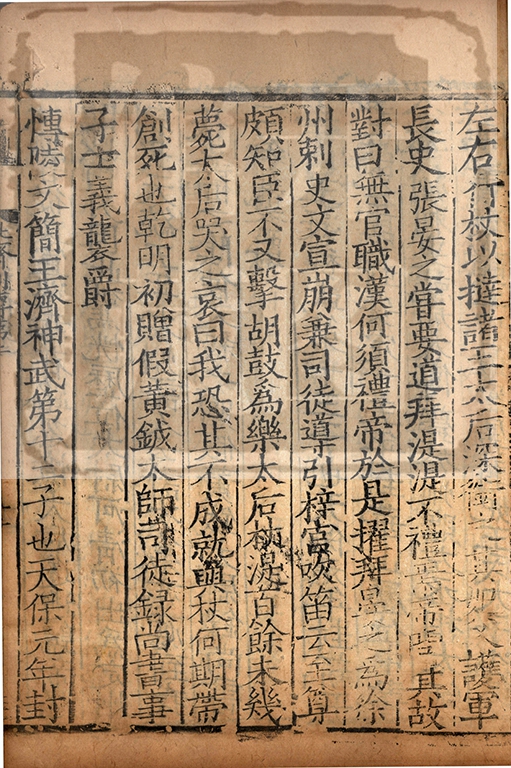 左右行杖以撻諸王太后深銜之其妃父護軍
長史張晏之嘗要道拜湜湜不禮焉帝問其故
對曰無官職漢何須禮帝於是擢拜晏之為徐
州刺史文宣崩兼司徒導引梓宮吹笛云至尊
頗知臣不又擊胡鼓為樂太后杖湜百餘未幾
薨太后哭之哀曰我恐其不成就與杖何期帶
創死也乾明初贈假黃鉞太師司徒録尚書事
子士義襲爵
博陵文簡王濟神武第十二子也天保元年封